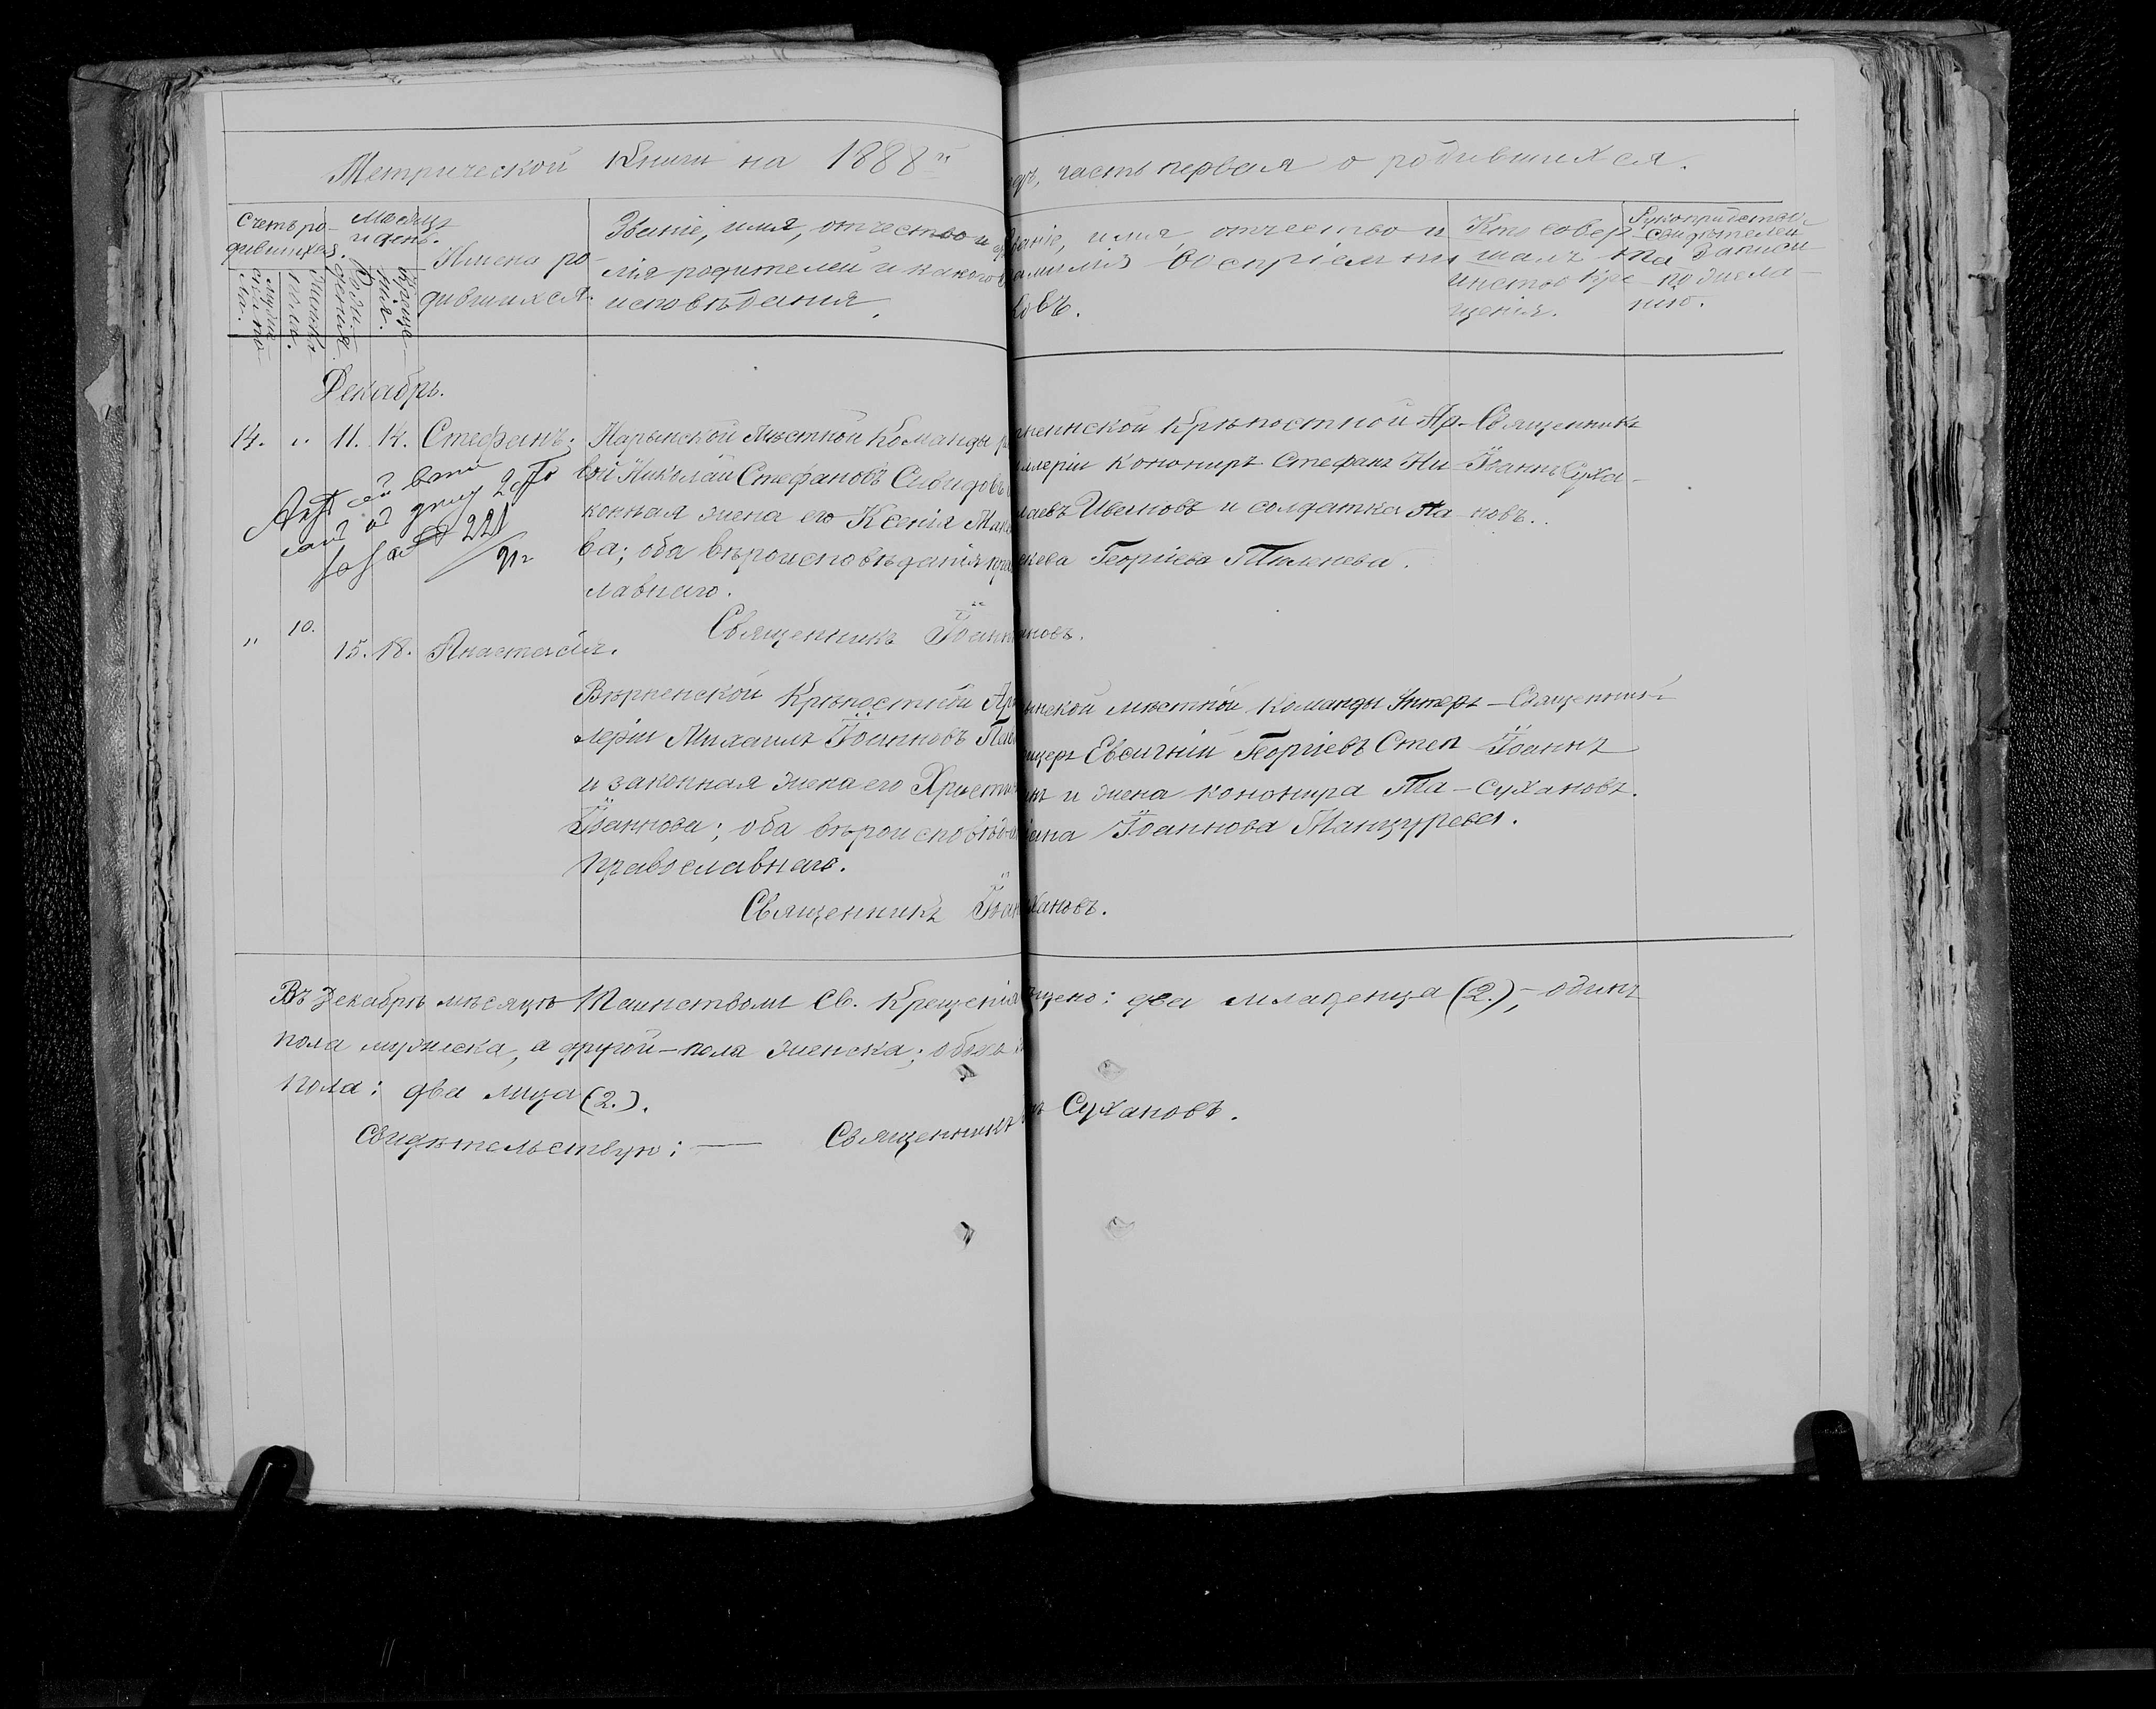 Метрической Книги на 1888й
одъ, часть первая о родившихся.
Счетъ ро-
дившихся.
Мѣсяцъ
и день.
Мужес-
ка по-
ла.
Женска.
Рожденія.
Креще-
нія.
Имена ро-
дившихся.
Званіе, имя, отчество и
лія родителей и какого
исповѣданія.
Званіе, имя, отчество и
амилія воспріемни
ковъ.
Кто совер
шалъ та
инство кре
щенія.
Рукоприкладство
свидѣтелей
записи
по жела-
нію.
Декабрь.
14. „ 11. 14. Стефанъ.
Нарынской Мѣстной Команды
вой Николай Стефановъ
конная жена его Ксенія
ва; оба вѣроисповѣданія пра
лавнаго.
Священникъ Іоанн
рненской Крѣпостной Ар-
иллеріи Кононирѣ Стефанъ Ни
лаевъ Ивановъ и солдатка Па
скева Георгіева
ановъ.
Священникъ
Іоаннъ Суха-
новъ.
221
„ 10. 15. 18. Анастасія.
Вѣрненской Крѣпостной Ар
леріи Михаилъ Іоанновъ
и законная жена его Христи
Іоаннова; оба вѣроисповѣда
православнаго.
Священникъ Іоан
ынской мѣстной Команды Унтеръ-
ицеръ Евсигній Георгіевъ Степ
инъ и жена кононира Та-
іана Іоаннова Манцурева.
хановъ.
Священникъ
Іоаннъ
Сухановъ.
Въ Декабрѣ мѣсяцѣ Таинствомъ Св. Крещенія
щено: два младенца (2.), – одинъ
пола мужеска, а другой – пола женска; обоего
пола: два лица (2.).
Свидѣтельствую: — Священникъ
нъ Сухановъ.